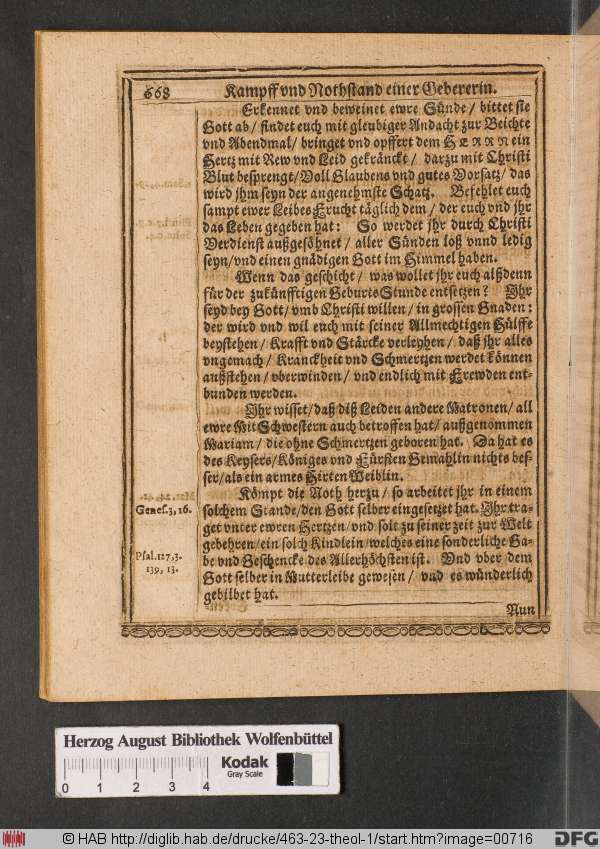 668 Kampff vnd Nothstand einer Gebererin.
Erkennet vnd beweinet ewre Sünde / bittet sie
Gott ab / findet euch mit gleubiger Andacht zur Beichte
vnd Abendmal / bringet vnd opffert dem HERRN ein
Hertz mit Rew vnd Leid gekränckt / darzu mit Christi
Blut besprengt / Voll Glaubens vnd gutes Vorsatz / das
wird jhm seyn der angenehmste Schatz. Befehlet euch
sampt ewer Leibes Frucht täglich dem / der euch vnd jhr
das Leben gegeben hat: So werdet jhr durch Christi
Verdienst außgesöhnet / aller Sünden loß vnnd ledig
seyn / vnd einen gnädigen Gott im Himmel haben.
Wenn das geschicht / was wollet jhr euch alßdenn
für der zukünfftigen Geburts Stunde entsetzen? Ihr
seyd bey Gott / vmb Christi willen / in grossen Gnaden:
der wird vnd wil euch mit seiner Allmechtigen Hülffe
beystehen / Krafft vnd Stärcke verleyhen / daß jhr alles
vngemach / Kranckheit vnd Schmertzen werdet können
außstehen / vberwinden / vnd endlich mit Frewden ent-
bunden werden.
Ihr wisset / daß diß Leiden andere Matronen / all
ewre Mit Schwestern auch betroffen hat / außgenommen
Mariam / die ohne Schmertzen geboren hat. Da hat es
des Keysers / Königes vnd Fürsten Gemahlin nichts bes-
ser / als ein armes Hirten Weiblin.
Kömpt die Noth herzu / so arbeitet jhr in einem
Genes. 3, 16. solchem Stande / den Gott selber eingesetzet hat. Ihr tra-
get vnter ewren Hertzen / vnd solt zu seiner zeit zur Welt
gebehren / ein solch Kindlein / welches eine sonderliche Ga-
Psal. 127, 3. be vnd Geschencke des Allerhöchsten ist. Vnd vber dem
139, 13. Gott selber in Mutterleibe gewesen / vnd es wünderlich
gebilbet hat.
Nun
Herzog August Bibliothek Wolfenbüttel
0 1 2 3 4
Kodak
Gray Scale
© HAB http://diglib.hab.de/drucke/463-23-theol-1/start.htm?image=00716
DFG